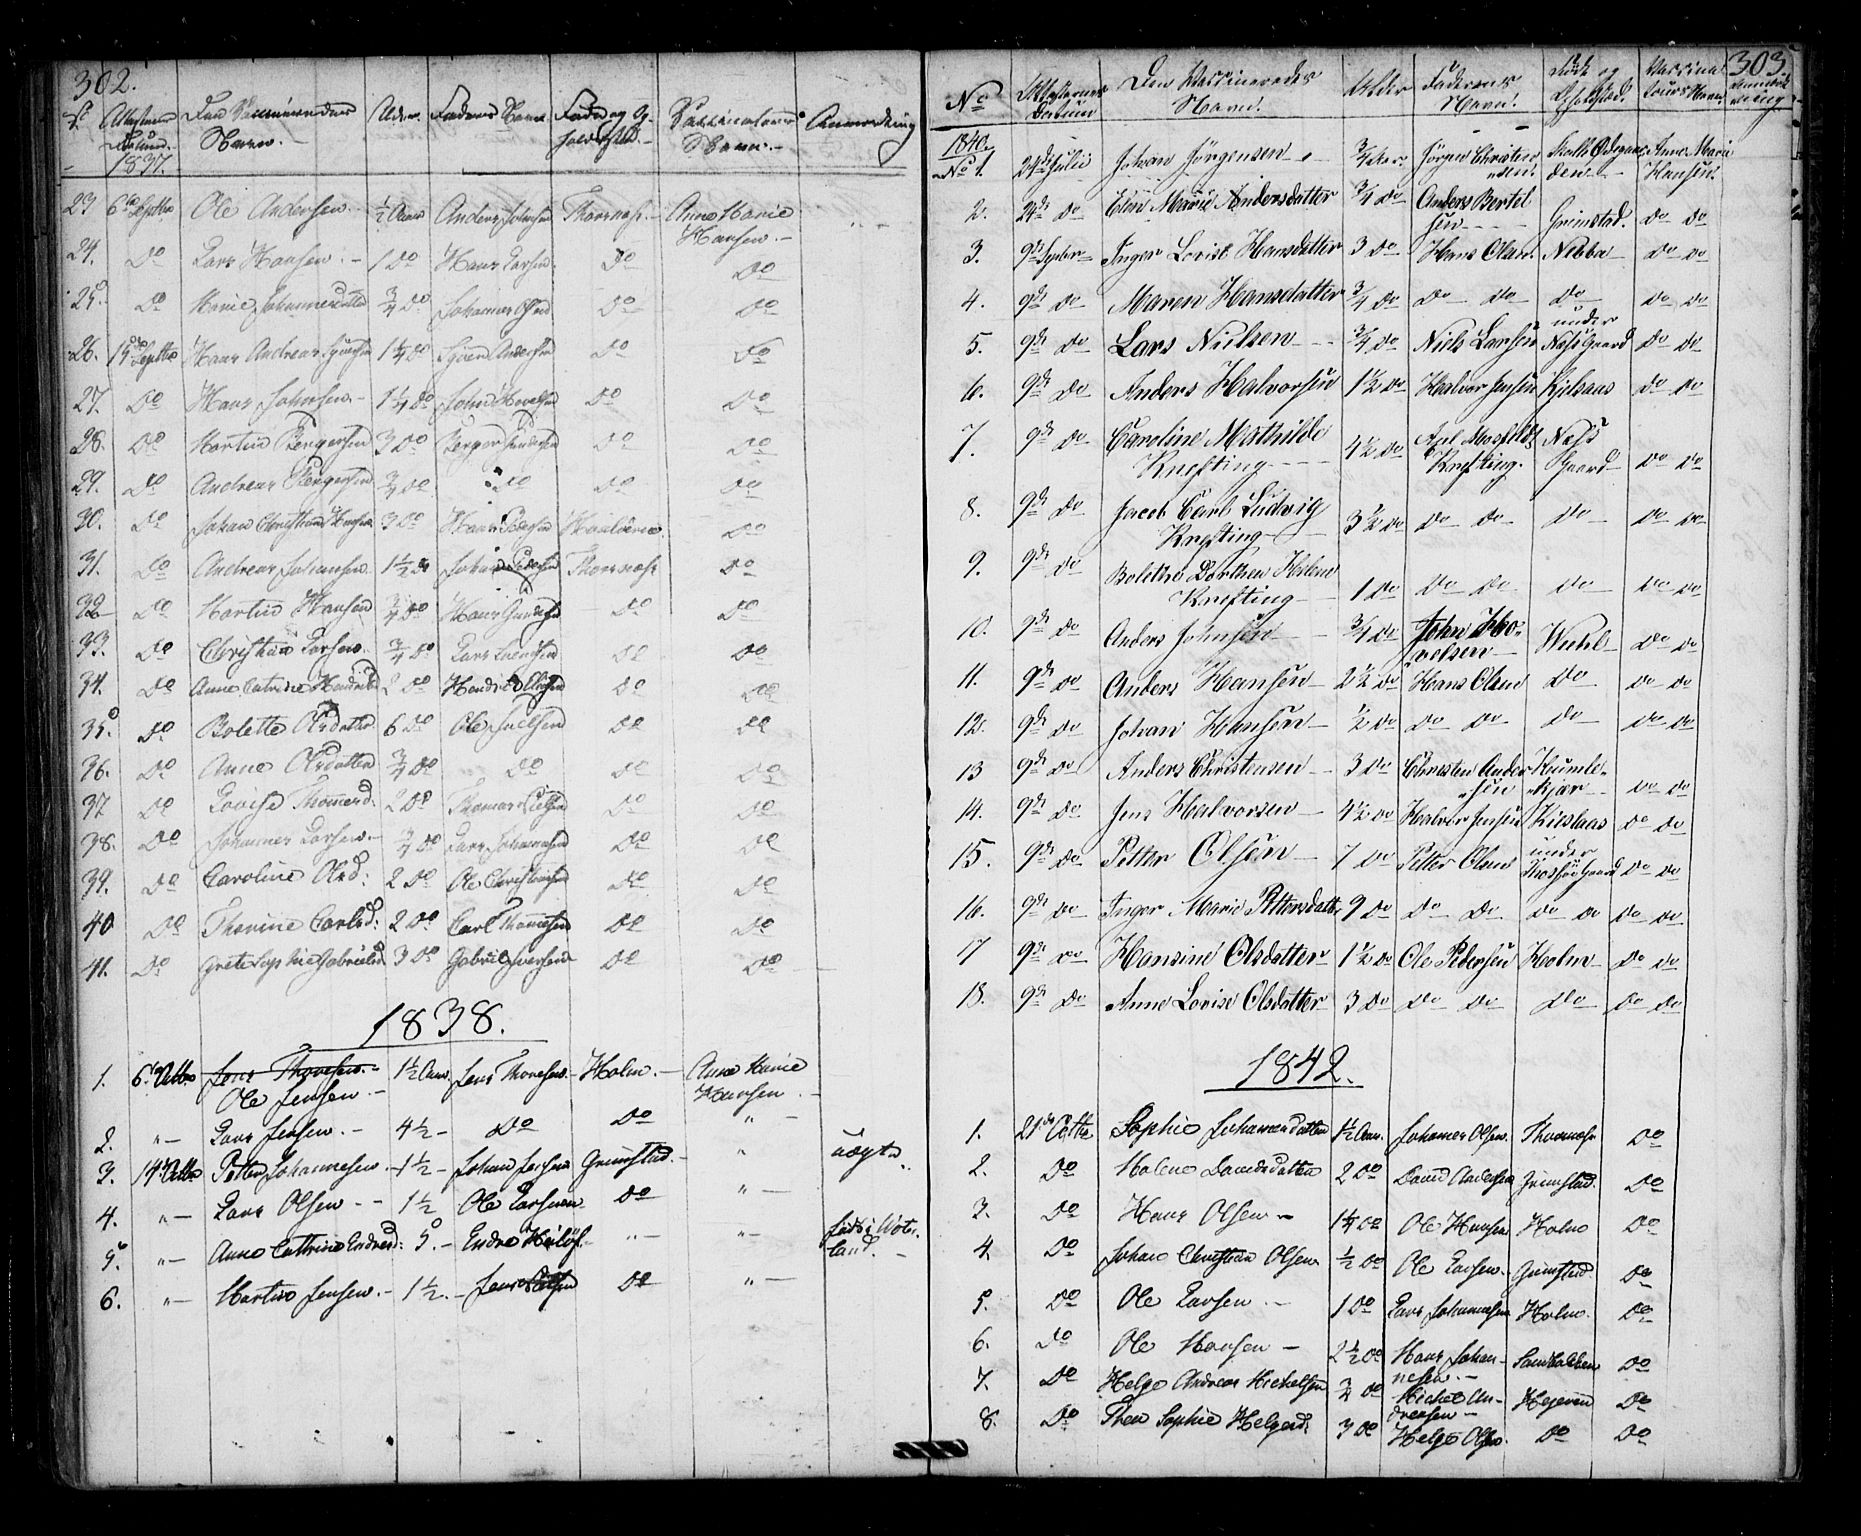 302.
No Attestens Datum. Den Vaccineredes Navn. Alder. Faderens Navn Føde og Opholdssted. Vaccinateurens Navn. Anmerkning
1837.
23 6te Septbr Ole Andersen. ½ Aar Anders Johnsen Thorsnæs. Anne Marie Hansen.
24. Do Lars Hansen. 1 Do Hans Larsen Do Do
25. Do Marie Johannesdatter ¾ Do Johannes Olsen Do Do
26. 15de Septbr Hans Andreas 1¼ Do Andersen Do Do
27. Do Hans Johnsen. 1¼ Do John Do Do
28. Do Martin Bergersen 3 Do Berger Gundersen Do Do
29. Do Andreas Bergersen ¾ Do Do Do Do
30. Do Johan Christian Hansen 3 Do Hans Do
31. Do Andreas Johansen 1½ Do Johan Pedersen Thorsnæs Do
32 Do Martin Hansen ¾ Do Hans Do Do
33. Do Christian Larsen. ¾ Do Lars Do Do
34. Do Anne Catrine 2 Do Do Do
35. Do Bolette Olsdatter 6 Do Ole Do Do
36. Do Anne Olsdatter ¾ Do Do Do Do
37 Do Lovise Thomesd. 2 Do Thomas Do Do
38. Do Johannes Larsen. ¾ Do Lars Johannesen Do Do
39. Do Caroline Olsd: 2 Do Ole Christensen Do Do
40 Do Thorine Carlsd: 2 Do Carl Thomesen Do Do
41. Do Grete Sophie Gabrielsd 3 Do Gabriel Iversen Do Do
1838.
1. 6te Octbr Jens Thoresen. 1½ Aar. Jens Thoresen Holm. Anne Marie
Ole Jensen. Hansen
2. "– Lars Jensen. 4½ Do Do "
3. 14de Octbr Petter Johannesen 1½ Johan Grimstad. " uægte
4. "– Lars Olsen 1½ Ole Larsen Do "–
5. "– Anne Cathrine Endresd: 5. Endre "– "– født i
land.
6. "– Martin Jensen. 1½. Jens Do "–
303
No Attestens Datum Den Vaccineredes Navn. Alder Faderens Navn. Føde og Opholdssted. Vaccinateurs Navn.
1840
No 1. 24de Julii Johan Jörgensen ¾ Aar. Jörgen Christensen Anne Marie Hansen
2. 24de do Elen Marie Andersdatter ¾ do Anders Bertelsen Grimstad. do do
3. 9de Septbr Inger Lovise Hansdatter 3 do Hans Olsen. Nebba do do
4. 9de do Maren Hansdatter ¾ do do do do do do
5. 9de do Lars Nielsen ¾ do Niels Larsen under Næs Gaard do do
6. 9de do Anders Halvorsen 1½ do Halvor Jensen Kjelsaas do do
7. 9de do Caroline Mathilde Krefting 4½ do Krefting. Næs Gaard do do
8. 9de do Jacob Carl Ludvig Krefting 3½ do do do do do do
9. 9de do Bolethe Dorthea Helene Krefting 1 do do do do do do
10. 9de do Anders Johnsen ¾ do John Hovelsen do do
11. 9de do Anders Hansen 2½ do Hans Olsen do do do
12. 9de do Johan Hansen ½ do do do do do do
13 9de do Anders Christensen 3 do Christen Andersen Humlekjær do do
14. 9de do Jens Halvorsen 4½ do Halvor Jensen Kielsaas do do
15. 9de do Petter Olsen 7 do Petter Olsen under Gaard do do
16. 9de do Inger Marie Pettersdatter 9 do do do do do do do
17 9de do Hansine Olsdatter 1½ do Ole Pedersen Holm do do
18. 9de do Anne Lovise Olsdatter 3 do do do do do do
1842.
1. 21de Octbr Sophie Johannesdatter 1½ Aar. Johannes Olsen. Thorsnæs Do
2. Do Helene Davidsdatter 2 Do David Andersen Grimstad. Do
3. Do Hans Olsen 1¼ Do Ole Hansen Holm Do
4. Do Johan Christian Olsen ½ Do Ole Larsen. Grimstad. Do
5. Do Ole Larsen. 1 Do Lars Johannesen Holm. Do
6. Do Ole Hansen 2½ Do Hans Johannesen. Sandbakken Do
7. Do Helge Andreas Michelsen ¾ Do Michel Andreasen Do
8. Do Thea Sophie Helgesd: 3 Do Helge Olsen. Do Do